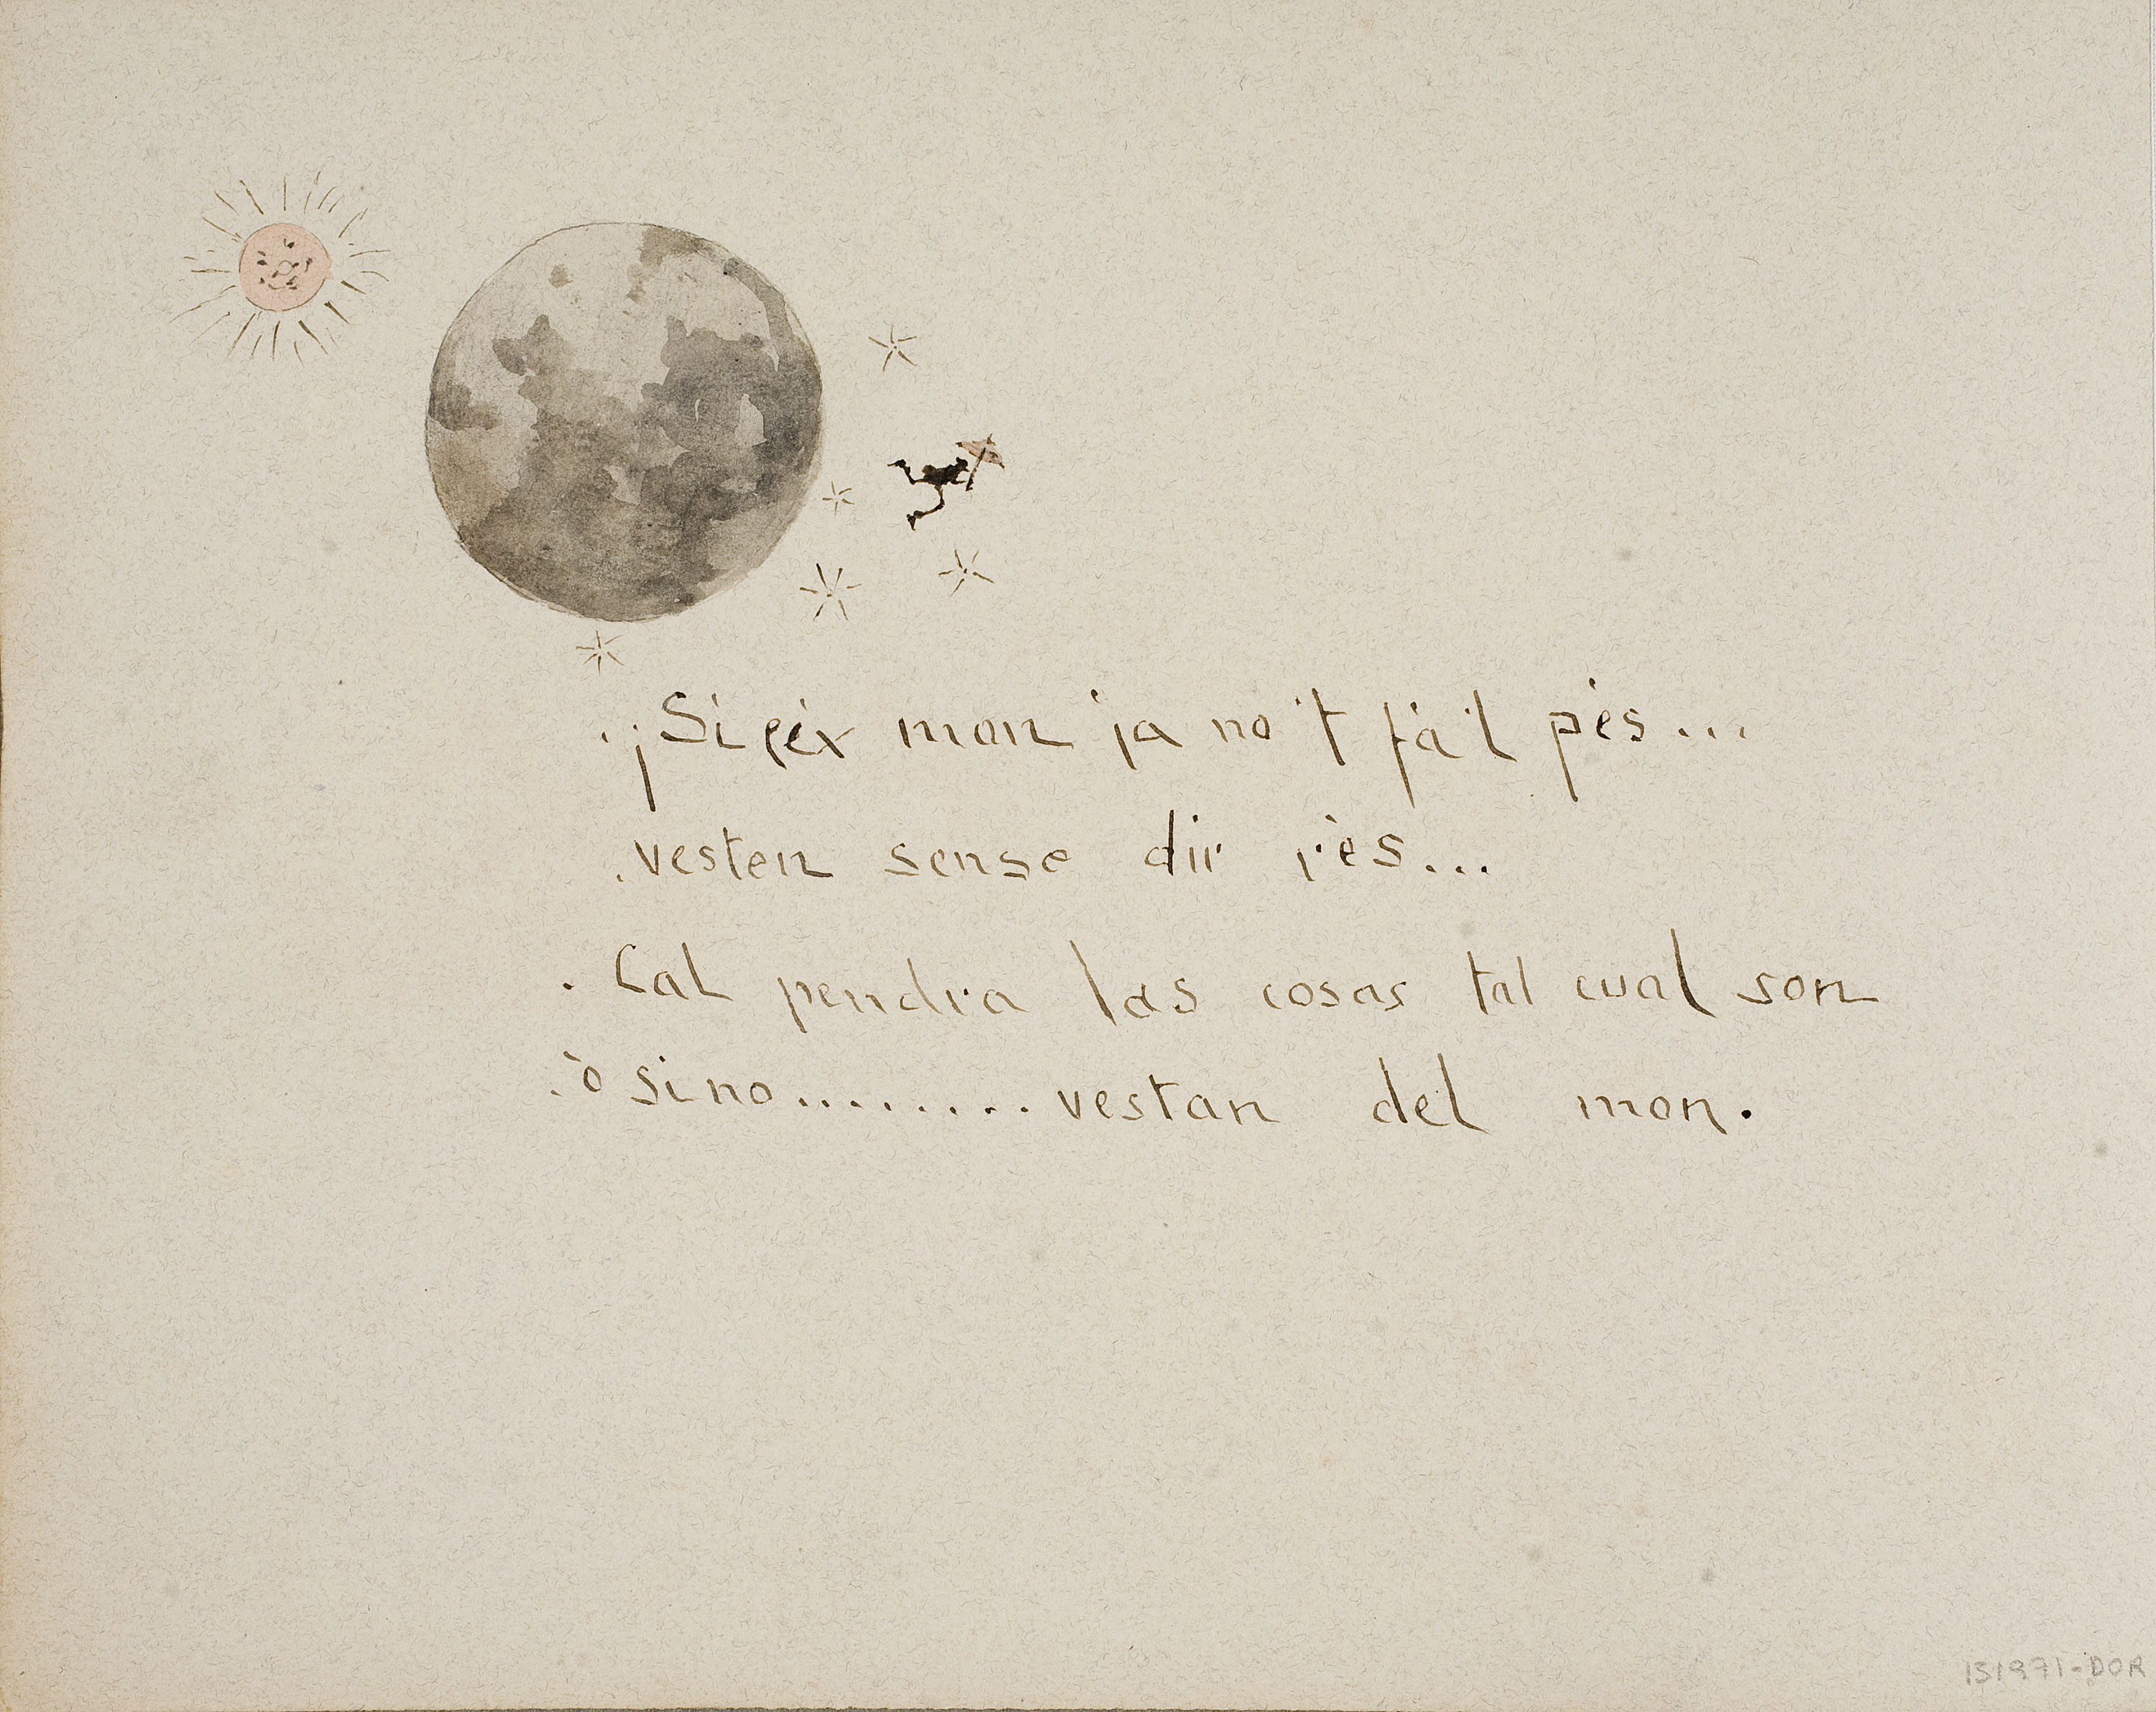 .¡Si eix mon ja no 't fá 'l pés...
.vesten sense dir rès...
. Cal pendra las cosas tal cual son
.ò si no.........vestan del mon.
151971-DOR